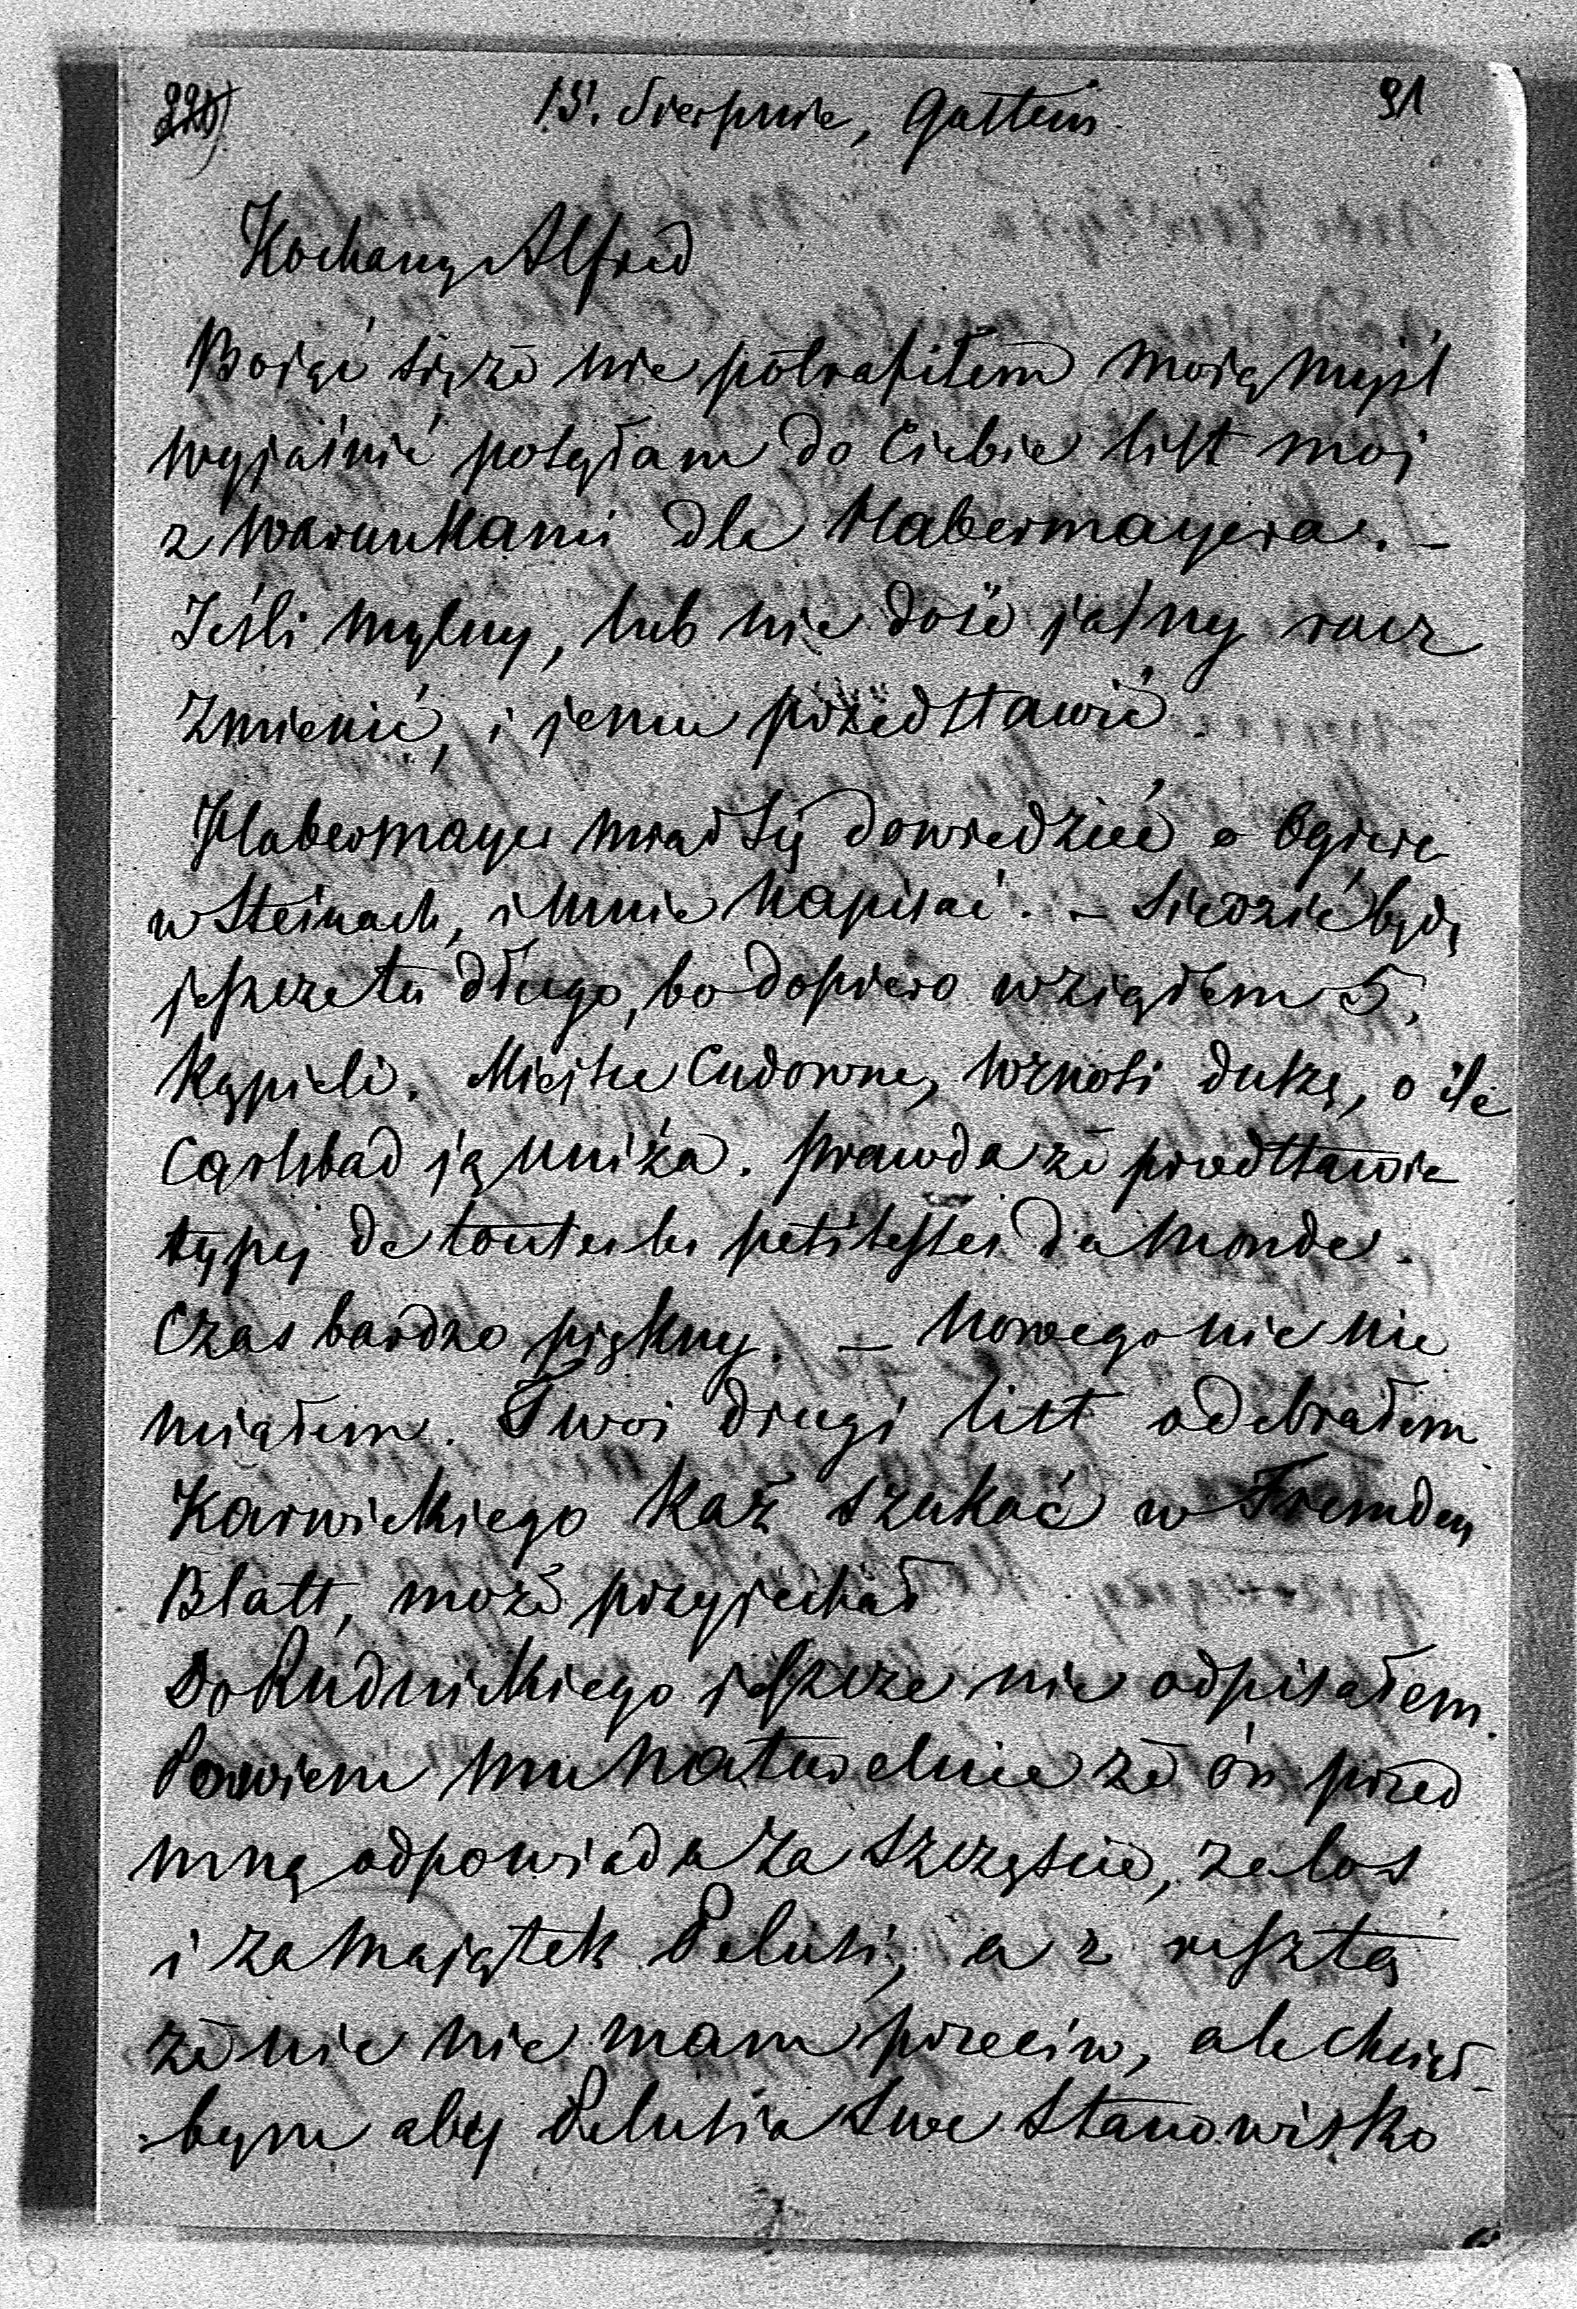 15. Sierpnia, Gastein 91
Kochany Alfred
Bojąć się że nie potrafiłem moią myśl
wyjaśnić posyłam do Ciebie list moj
z warunkami dla Habermayera. –
Jeśli mylny, lub nie dość jasny racz
zmienić, i jemu przedstawić.
Habermayer miał się dowiedzieć o Ogierie
w Steinach, i mnie napisać. – Siedzieć będę
jeszcze tu długo, bo dopiero wziąłem 5.
Kąpieli. Miejsce Cudowne, wznosi duszę, o ile
Carlsbad ją zniża. prawda że przedstawia
typy de toutes les petitesses du Monde.
Czas bardzo piękny. – Nowego nic nie
miałem. Twoi drugi list odebrałem
Karwickiego każ szukać w Fremden
Blatt, może przyjechał
Do Rudnickiego jeszcze nie odpisałem.
Powiem mu naturelnie że on przed
mną odpowiada za szczęście, za los
i za majątek Pelusi, a z resztą
że nic nie mam przeciw, ale chciał-
bym aby Pelusia swe stanowisko